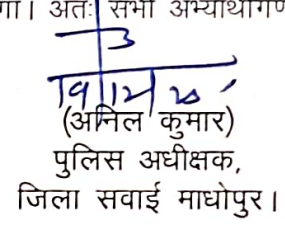 गा। अतः सभी अभ्यार्थीगण
(अनिल कुमार)
पुलिस अधीक्षक,
जिला सवाई माधोपुर।